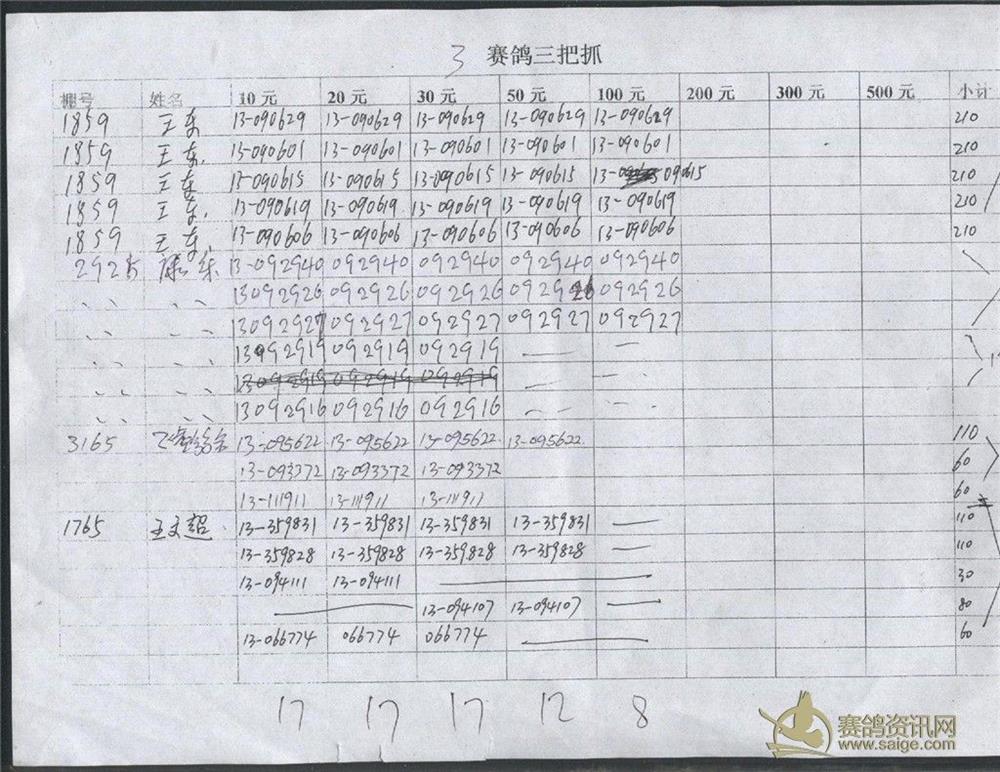 3 赛鸽三把抓
棚号 姓名 10 元 20 元 30 元 50 元 100 元 200 元 300 元 500 元 小计
1859 王东 13-090629 13-090629 13-090629 13-090629 13-090629 210
1859 王东. 13-090601 13-090601 13-090601 13-090601 13-090601 210
1859 王东 13-090615 13-090615 13-090615 13-090615 13-090615 210
1859 王东. 13-090619 13-090619 13-090619 13-090619 13-090619 210
1859 王东 13-090606 13-090606 13-090606 13-090606 13-090606 210
2925 13-092940 092940 092940 092940 092940
、、 、、 13092926 092926 092926 092926 092926
、、 、、 13092927 092927 092927 092927 092927
、、 、、 13092919 092919 092919 — —
、、 、、 13092919 092919 092919 — —
、、 、、 13092916 092916 092916 — —
3165 13-095622 13-095622 13-095622 13-095622 110
13-093372 13-093372 13-093372 60
13-111911 13-111911 13-111911 60
1765 王文超 13-359831 13-359831 13-359831 13-359831 — 110
13-359828 13-359828 13-359828 13-359828 — 110
13-094111 13-094111 — 30
— 13-094107 13-094107 — 80
13-066774 066774 066774 — 60
17 17 17 12 8
赛鸽资讯网
www.saige.com